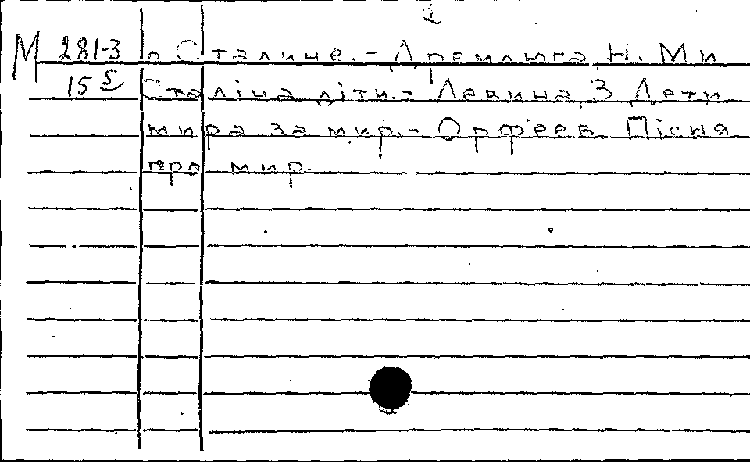 М 281-3 о Сталине. - Дремлюга, Н. Ми
15 5 Сталіна діти. - Левина, З. Дети
мира за мир. - Орфеев. Пісня
про мир.